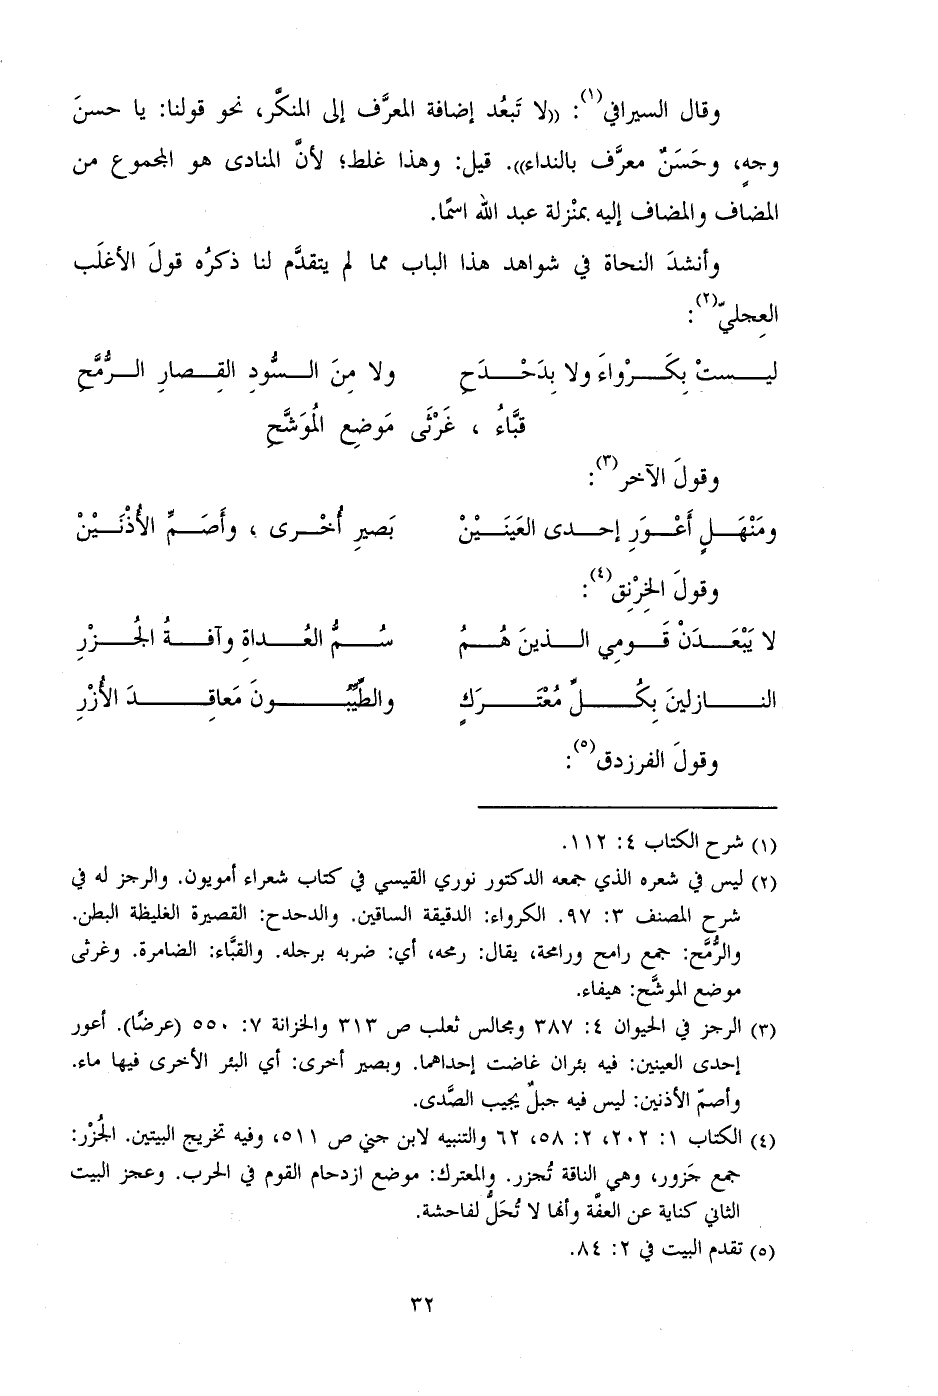 وقال السيرافي(١): «لا تَبعُد إضافة المعرَّف إلى المنكَّر، نحو قولنا: يا حسنَ
وجهٍ، وحَسَنٌ معرَّف بالنداء». قيل: وهذا غلط؛ لأنَّ المنادى هو المجموع من
المضاف والمضاف إليه بمنْزلة عبد الله اسمًا.
وأنشدَ النحاة في شواهد هذا الباب مما لم يتقدَّم لنا ذكرُه قولَ الأغلَب
العِجليّ(٢):
ليـــستْ بِكَـــرْواءَ ولا بِدَحْـــدَحِ ولا مِنَ الـــسُّودِ القِـــصارِ الـــرُّمَّحِ
قبَّاءُ ، غَرْثَى مَوضِعِ المُوَشَّحِ
وقولَ الآخر(٣):
ومَنْهَـــلٍ أَعْـــوَرِ إحـــدى العَينَـــيْنْ بَصيرِ أُخْـــرى ، وأَصَـــمِّ الأُذْنَـــيْنْ
وقولَ الخِرْنِق(٤):
لا يَبْعَـــدَنْ قَـــومِي الـــذينَ هُـــمُ سُـــمُّ العُـــداةِ وآفـــةُ الجُـــزْرِ
النـــازلينَ بِكُـــلِّ مُعْتَـــرَكٍ والطَّيِّبُـــونَ مَعاقِـــدَ الأُزْرِ
وقولَ الفرزدق(٥):
(١) شرح الكتاب ٤: ١١٢.
(٢) ليس في شعره الذي جمعه الدكتور نوري القيسي في كتاب شعراء أمويون. والرجز له في
شرح المصنف ٣: ٩٧. الكرواء: الدقيقة الساقين. والدحدح: القصيرة الغليظة البطن.
والرُّمَّح: جمع رامح ورامحة، يقال: رمحه، أي: ضربه برجله. والقبَّاء: الضامرة. وغرثى
موضع الموشَّح: هيفاء.
(٣) الرجز في الحيوان ٤: ٣٨٧ ومجالس ثعلب ص ٣١٣ والخزانة ٧: ٥٥٠ (عرضًا). أعور
إحدى العينين: فيه بئران غاضت إحداهما. وبصير أخرى: أي البئر الأخرى فيها ماء.
وأصمّ الأذنين: ليس فيه جبلٌ يجيب الصَّدى.
(٤) الكتاب ١: ٢٠٢، ٢: ٥٨، ٦٢ والتنبيه لابن جني ص ٥١١، وفيه تخريج البيتين. الجُزْر:
جمع جَزور، وهي الناقة تُجزر. والمعترك: موضع ازدحام القوم في الحرب. وعجز البيت
الثاني كناية عن العفَّة وأنها لا تُحَلُّ لفاحشة.
(٥) تقدم البيت في ٢: ٨٤.
٣٢